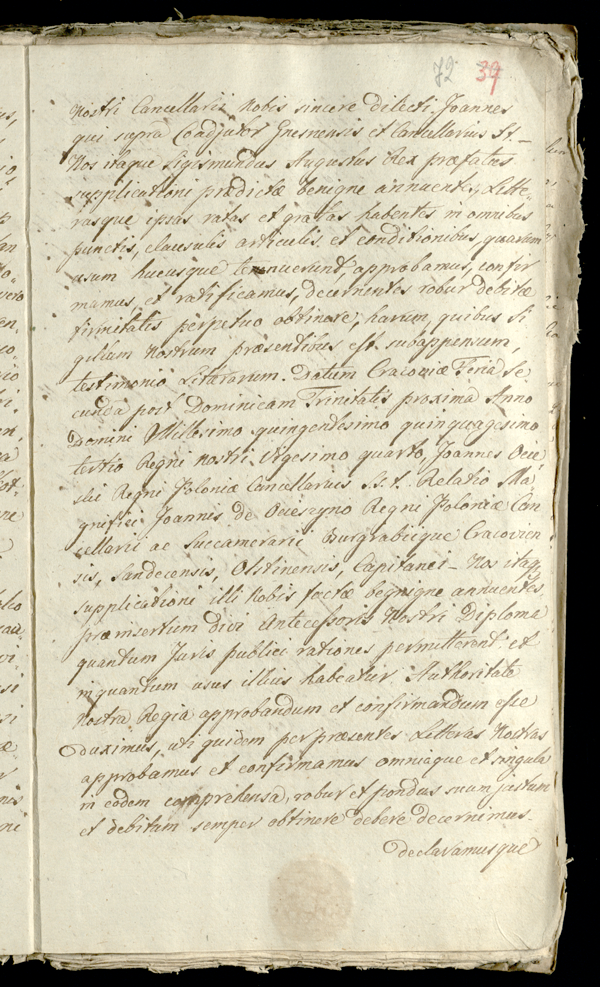 72 39
Nostri Cancellarii Nobis sincere dilecti. Joannes
qui supra Coadjutor Gnesnensis et Cancellarius St.
Nos itaque Sigismundus Augustus Rex præfatus
supplicationi prædictæ benigne annuentes, Litte-
rasque ipsas ratas et gratas habentes in omnibus
punctis, clausulis articulis, et conditionibus, quarum
usum hucusque tenuerunt, approbamus, confir
mamus, et ratificamus, decernentes robur debitæ
firmitatis perpetuo obtinere, harum, quibus Si
gillum Nostrum præsentibus est subappensum,
testimonio Literarum. Datum Cracoviæ Feria Se
cunda post Dominicam Trinitatis proxima Anno
Domini Millesimo quingentesimo quinquagesimo
tertio Regni nostri Vigesimo quarto, Joannes Ocie
ski Regni Poloniæ Cancellarius S.s.t. Relatio Ma
gnifici Joannis de Ocieszyno Regni Poloniæ Can
cellarii ac Succamerarii Burgrabiique Cracovien
sis, Sandecensis, Olstinensis, Capitanei – Nos itaq,
supplicationi illi Nobis factæ begnigne annuentes,
præinsertum divi Antecessoris Nostri Diploma
quantum Juris publici rationes permitterent, et
inquantum usus illius habeatur Authoritate
Nostra Regia approbandum et confirmandum esse
duximus, uti quidem per præsentes Litteras Nostras
approbamus et confirmamus omniaque et singula
in eodem comprehensa, robur et pondus suum justum
et debitum semper obtinere debere decernimus.
declaramusque